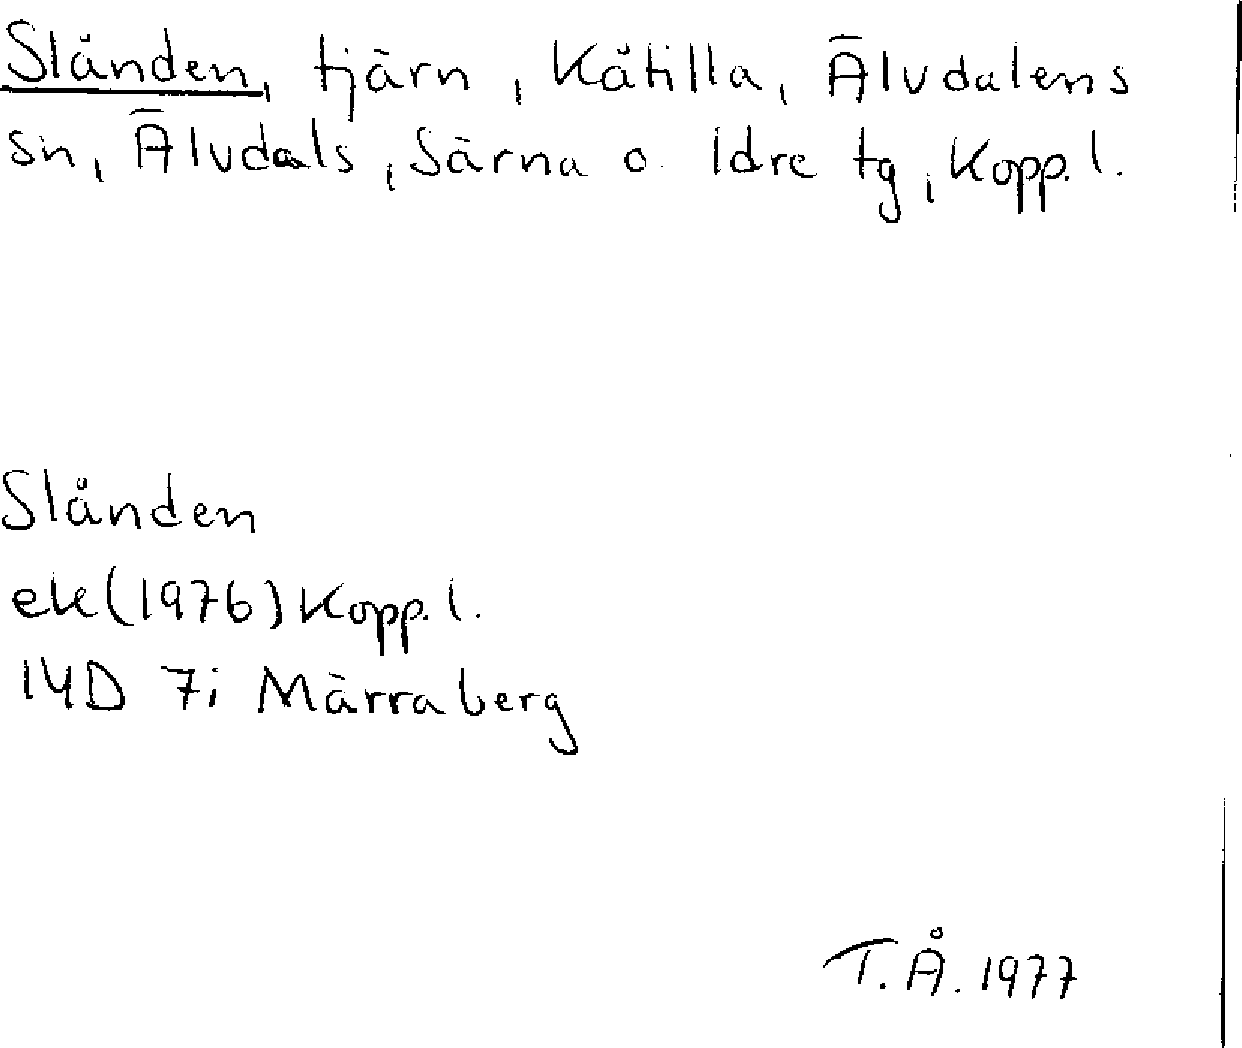 Slånden, tjärn, Kåtilla, Älvdalens
sn, Älvdals, Särna o. Idre tg, Kopp. l.
Slånden
ek(1976) Kopp. l.
14D 7i Märraberg
T.Å. 1977